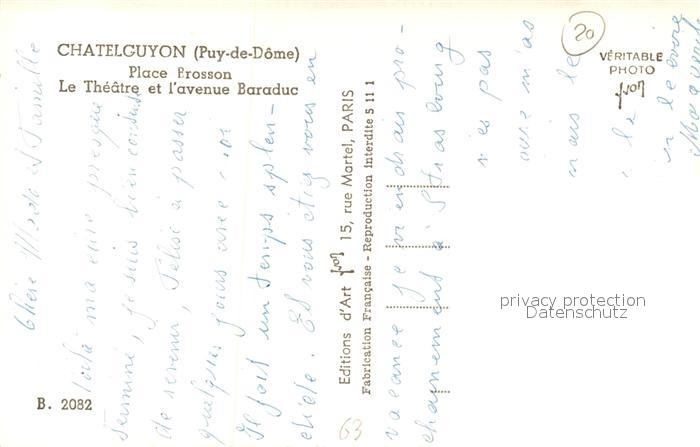 CHATELGUYON (Puy-de-Dôme)
Place Brosson
Le Théâtre et l'avenue Baraduc
20
VÉRITABLE
PHOTO
Yvon
Chère Mado et Famille
Voilà ma cure presque
terminé, je suis bien contente
de revenir, Félise à passer
quelques jours avec moi
Il fait un temps splen-
dide. Et vous étiez vous en
Editions d'Art Yvon 15, rue Martel, PARIS
Fabrication Française - Reproduction Interdite 5 11 1
vacance je viendrais pro-
chainement à Strasbourg
pas
mais le
la
B. 2082
63
privacy protection
Datenschutz